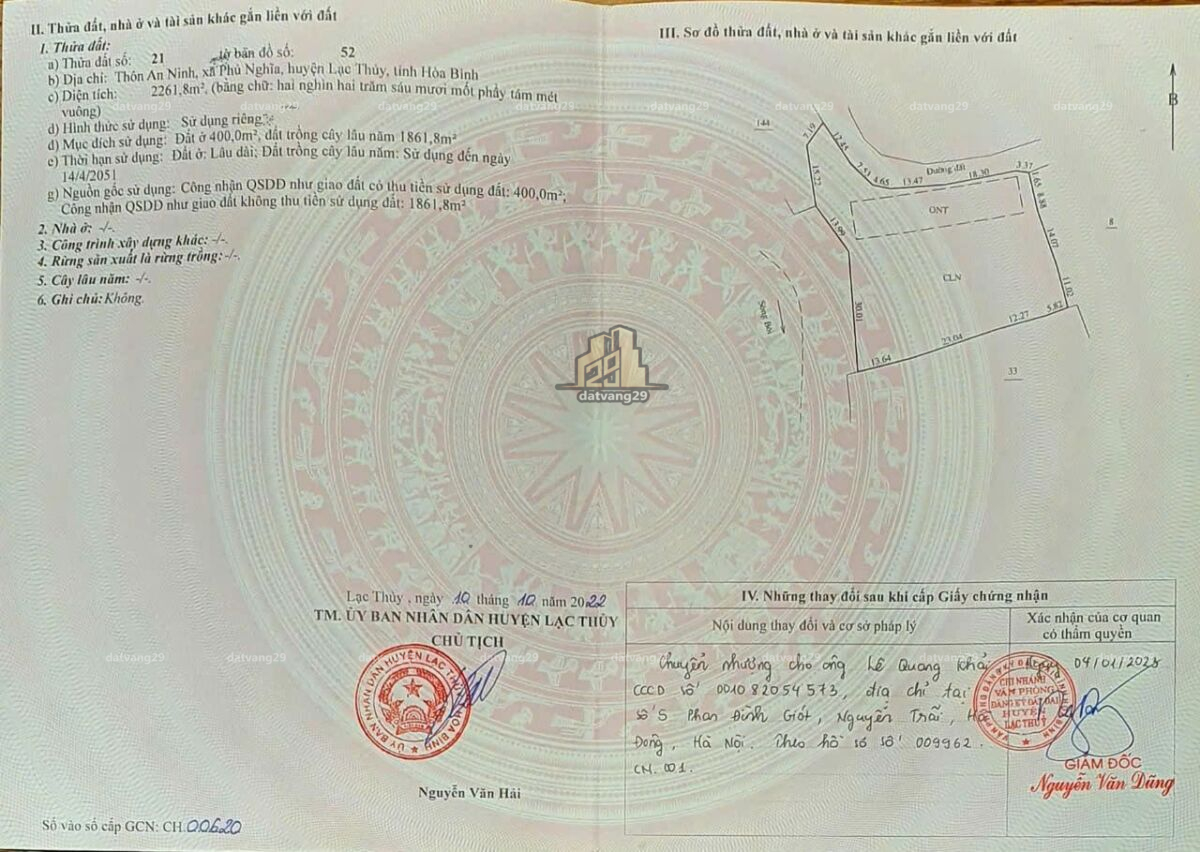 II. Thửa đất, nhà ở và tài sản khác gắn liền với đất
1. Thửa đất:
a) Thửa đất số: 21 tờ bản đồ số: 52
b) Địa chỉ: Thôn An Ninh, xã Phú Nghĩa, huyện Lạc Thủy, tỉnh Hòa Bình
c) Diện tích: 2261,8m², (bằng chữ: hai nghìn hai trăm sáu mươi mốt phẩy tám mét
vuông)
d) Hình thức sử dụng: Sử dụng riêng
đ) Mục đích sử dụng: Đất ở 400,0m², đất trồng cây lâu năm 1861,8m²
e) Thời hạn sử dụng: Đất ở: Lâu dài; Đất trồng cây lâu năm: Sử dụng đến ngày
14/4/2051
g) Nguồn gốc sử dụng: Công nhận QSDĐ như giao đất có thu tiền sử dụng đất: 400,0m²;
Công nhận QSDĐ như giao đất không thu tiền sử dụng đất: 1861,8m²
2. Nhà ở: -/-.
3. Công trình xây dựng khác: -/-.
4. Rừng sản xuất là rừng trồng: -/-.
5. Cây lâu năm: -/-.
6. Ghi chú: Không.
Lạc Thủy, ngày 10 tháng 10 năm 2022
TM. ỦY BAN NHÂN DÂN HUYỆN LẠC THỦY
CHỦ TỊCH
Nguyễn Văn Hải
Số vào sổ cấp GCN: CH 00620
III. Sơ đồ thửa đất, nhà ở và tài sản khác gắn liền với đất
B
144
7.19
12.45
7.51
4.65
13.47
Đường đất
18.30
3.37
7.65
8.88
15.22
ONT
8
13.99
14.07
CLN
11.02
30.01
Sông Bôi
5.82
12.27
23.04
13.64
33
datvang29
IV. Những thay đổi sau khi cấp Giấy chứng nhận
Nội dung thay đổi và cơ sở pháp lý
Xác nhận của cơ quan
có thẩm quyền
Chuyển nhượng cho ông Lê Quang Khải
CCCD số 001082054573, địa chỉ tại
số 5 Phan Đình Giót, Nguyễn Trãi, Hà
Đông, Hà Nội. Theo hồ sơ số 009962.
CN.001.
CHI NHÁNH
VĂN PHÒNG
ĐĂNG KÝ ĐẤT ĐAI
HUYỆN
LẠC THUỶ
GIÁM ĐỐC
Nguyễn Văn Dũng